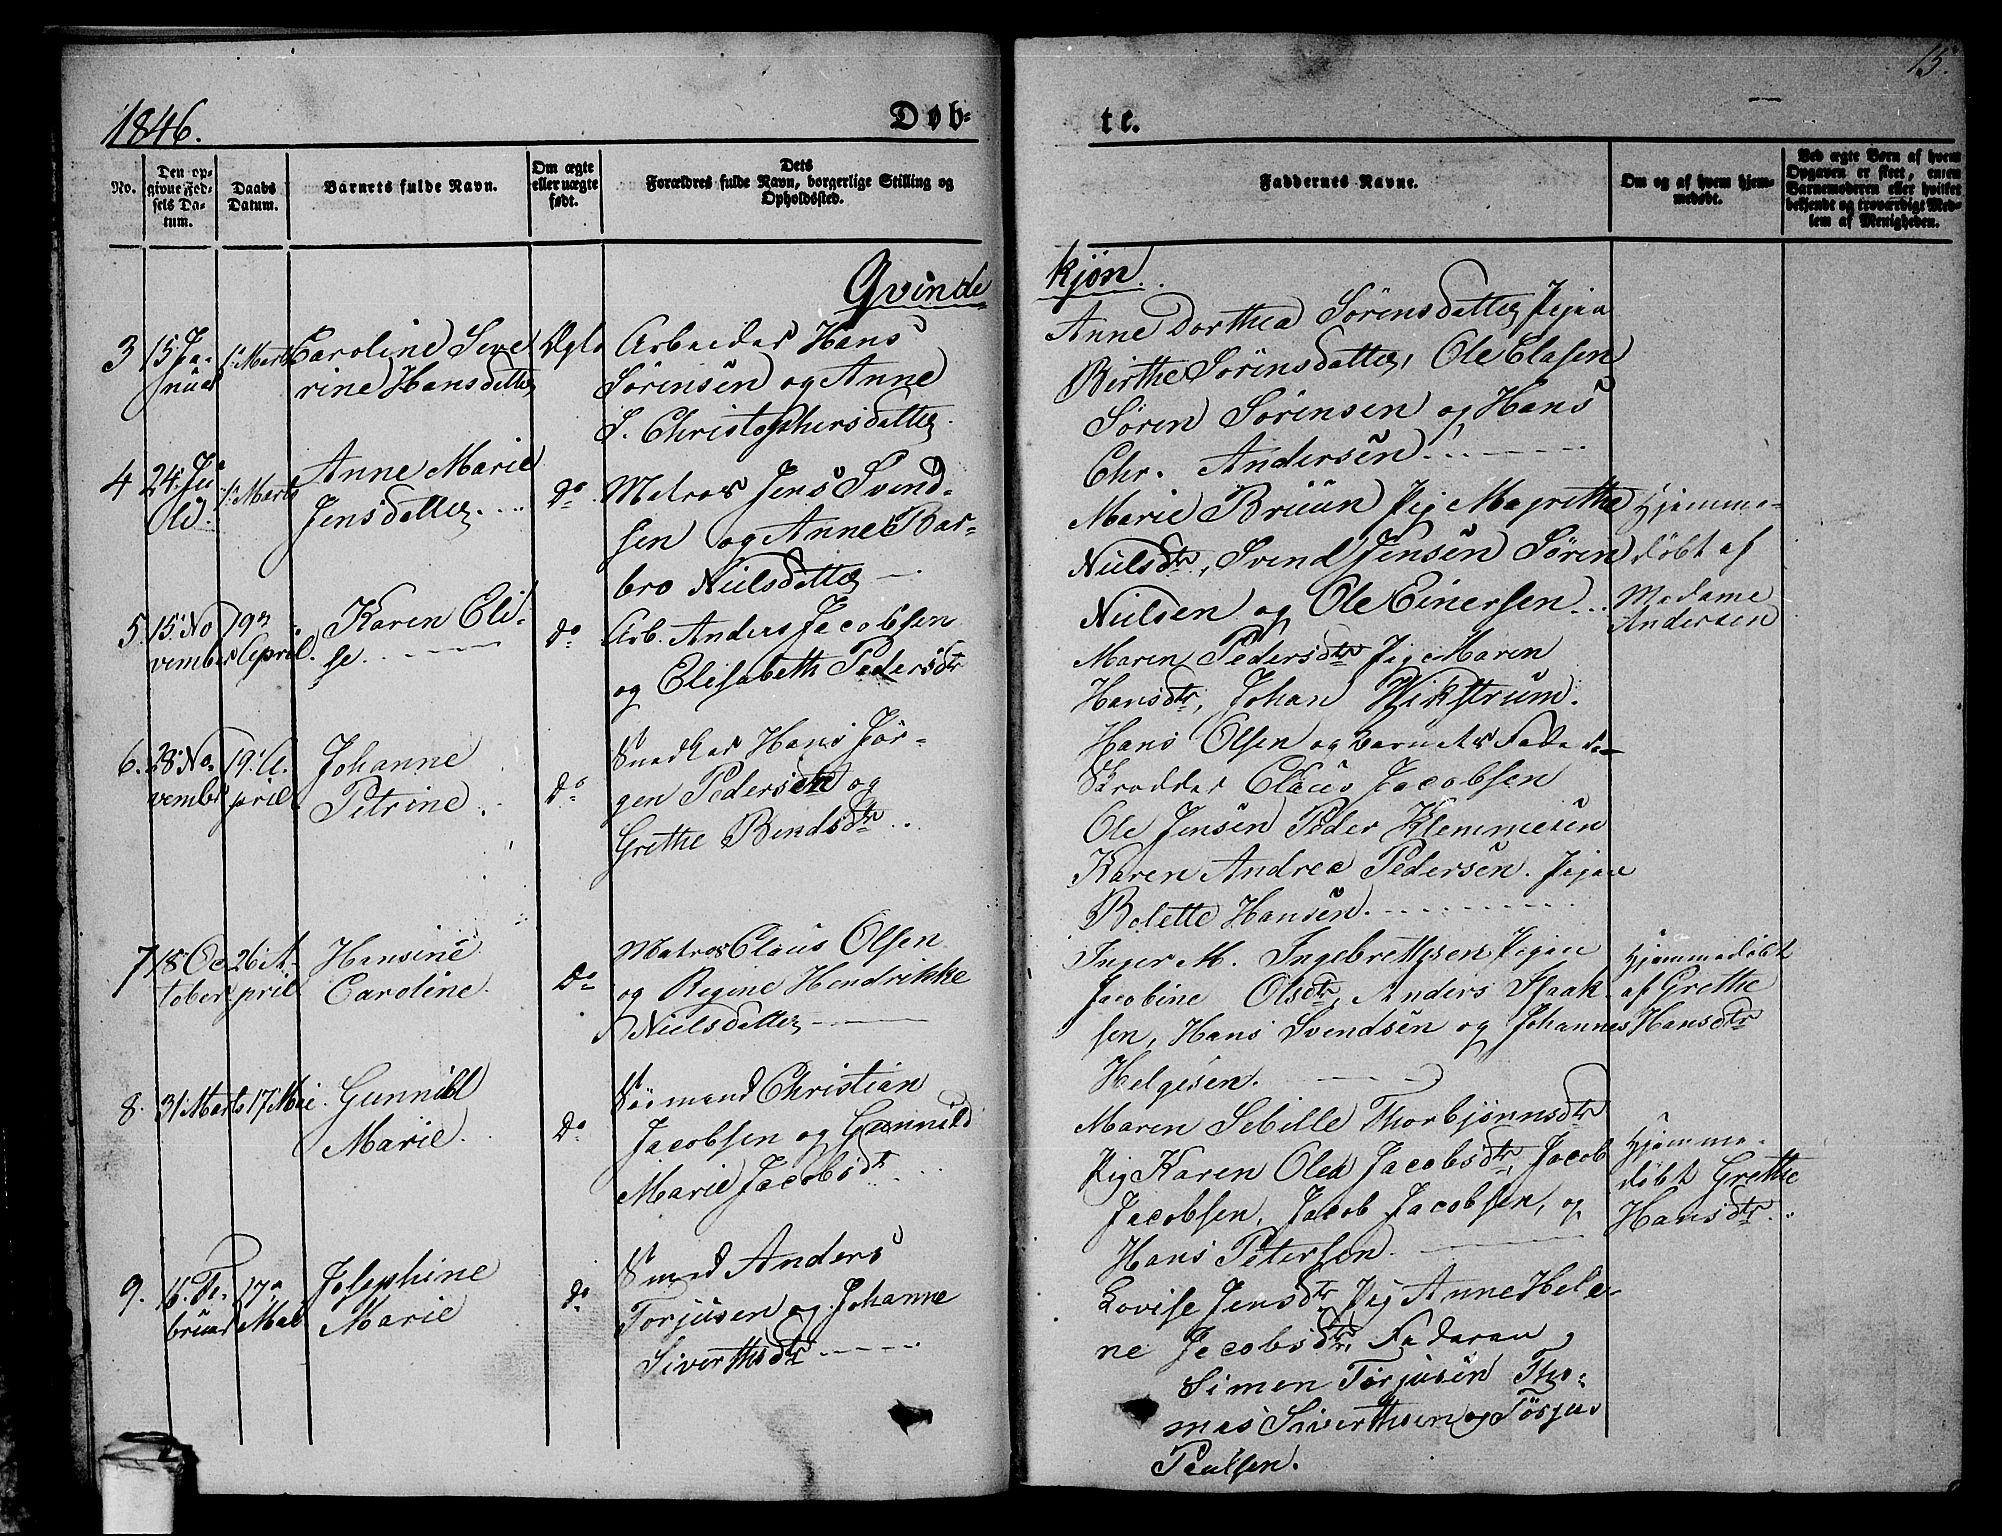 15.
1846.
Døb-
te.
No.
Den op-
givne Fød-
sels Da-
tum.
Daabs
Datum.
Barnets fulde Navn.
Om ægte
eller uægte
født.
Dets
Forældres fulde Navn, borgerlige Stilling og
Opholdssted.
Faddernes Navne.
Om og af hvem hjem-
medøbt.
Ved ægte Børn af hvem
Opgaven er skeet, enten
Barnemoderen eller hvilket
bekjendt og troværdigt Med-
lem af Menigheden.
Qvinde
kjøn.
3
15 Ja-
nuar
1. Marts
Caroline Seve
rine Hansdatter
Ægte
Arbeider Hans
Sørensen og Anne
S. Christophersdatter
Anne Dorthea Sørensdatter Pigen
Birthe Sørensdatter, Ole Olasen
Søren Sørensen og Hans
Chr. Andersen
4
24. Ju
li.
1. Marts
Anne Marie
Jensdatter
do
Matros Jens Svend-
sen og Anne Bar-
bro Nielsdatter
Marie Bruun Pig Magrethe
Nielsdtr, Svend Jensen Søren
Nielsen og Ole Einersen
Hjemme-
døbt af
Madame
Andersen
5
15. No
vember
19de
April.
Karen Eli-
se
do
Arb. Anders Jacobsen
og Elisabeth Pedersdtr
Maren Pedersdtr Pig Maren
Hansdtr, Johan Wikstrum.
Hans Olsen og Barnets Fader
6.
28. No-
vember
19. A-
pril
Johanne
Petrine
do
Snedker Hans Jør-
gen Pedersen og
Grethe Bendsdtr
Skrædder Claus Jacobsen
Ole Jensen Peder Klemmesen
Karen Andrea Pedersen. Pigen
Bolette Hansen.
7
18 Oc
tober
26. A-
pril
Hansine
Caroline
Do
Matros Claus Olsen
og Regine Hendrikke
Nielsdatter
Inger M. Ingebrethsen Pigen
Jacobine Olsdtr, Anders Isaak-
sen, Hans Svendsen og Johannes
Helgesen.
Hjemmedøbt
af Grethe
Hansdtr
8.
31 Marts
17 Mai
Gunnild
Marie
Do
Sømand Christian
Jacobsen og Gunnild
Marie Jacobsdt
Maren Sebille Thorbjønnsdtr
Pig Karen Olea Jacobsdtr, Jacob
Jacobsen, Jacob Jacobsen, og
Hans Petersen.
Hjemme-
døbt Grethe
Hansdtr
9.
16. Fe-
bruar
17de
Mai
Josephine
Marie
do
Smed Anders
Torjusen og Johanne
Siverthsdtr
Lovise Jensdtr Pig Anne Hele-
ne Jacobsdtr, Faderen
Simen Torjusen Tho-
mas Siverthsen og Torjus
Paulsen.